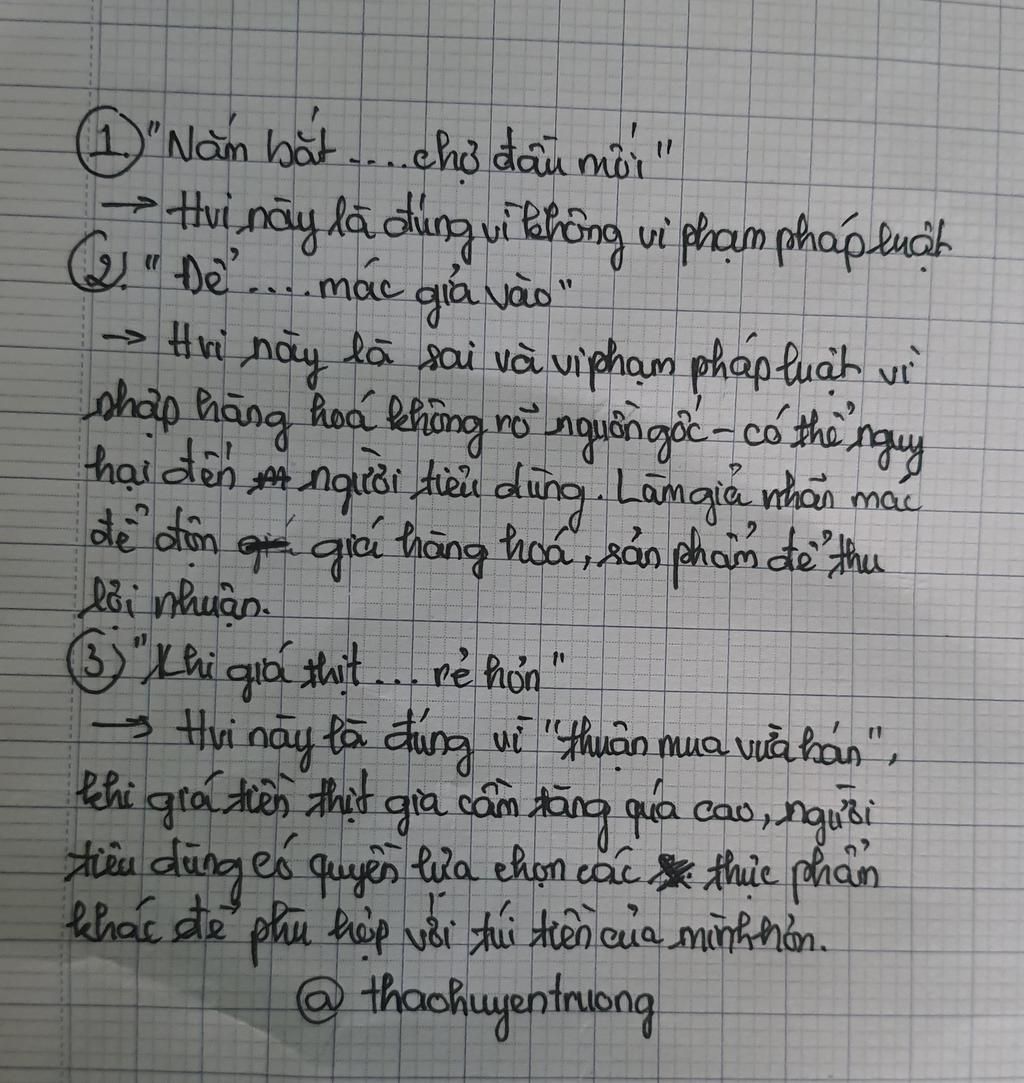 ① "Nắm bắt ....chợ đầu mối"
→ Hvi này là đúng vì không vi phạm pháp luật
②. " Để ....mác giả vào"
→ Hvi này là sai và vi phạm pháp luật vì
nhập hàng hoá không rõ nguồn gốc - có thể nguy
hại đến người tiêu dùng. Làm giả nhãn mác
để độn giá hàng hoá, sản phẩm để thu
lợi nhuận.
③ "Khi giá thịt ... rẻ hơn"
→ Hvi này là đúng vì "thuận mua vừa bán",
khi giá tiền thịt gia cầm tăng quá cao, người
tiêu dùng có quyền lựa chọn các thực phẩn
khác để phù hợp với túi tiền của mình hơn.
@ thaohuyentruong